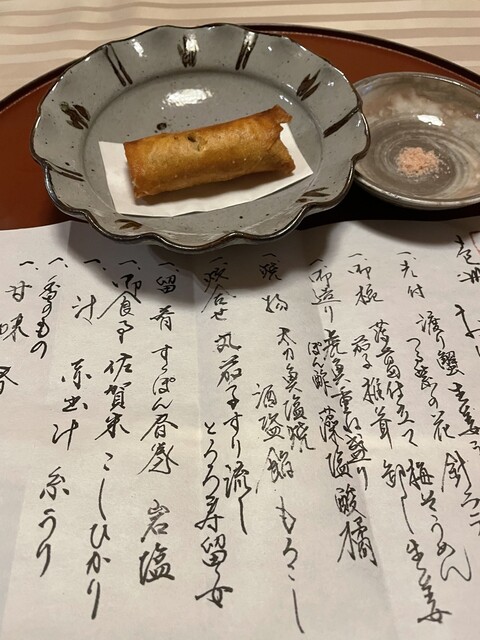 一、先付 渡り蟹 生姜
の花
一、御椀 仕立て 梅そうめん
茄子 椎茸 卸し生姜
一、御造り 虎魚重ね盛り
ぽん酢 藻塩 酸橘
一、焼物 太刀魚塩焼
酒塩餡 もろこし
一、炊合せ 丸茄子すり流し
とろろ
一、留肴 すっぽん春巻 岩塩
一、御食事 佐賀米 こしひかり
一、汁 赤出汁 糸うり
一、香のもの
一、甘味